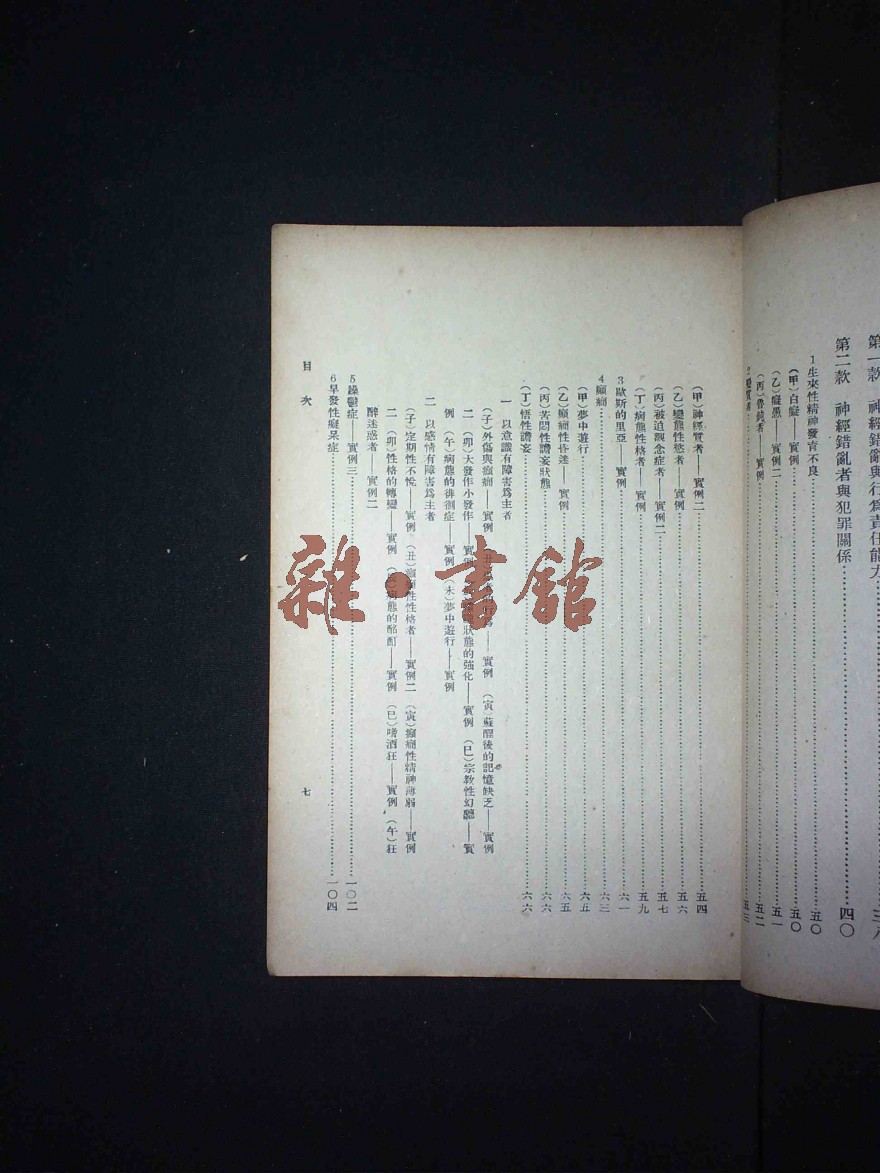 第二款　神經錯亂者與犯罪關係……四〇
1 生來性精神發育不良……五〇
(甲)白癡——實例……五〇
(乙)癡愚——實例二……五一
(丙)魯鈍者——實例……五二
(甲)神經質者——實例二……五四
(乙)變態性慾者——實例……五六
(丙)被迫觀念症者——實例二……五七
(丁)病態性格者——實例……五九
3 歇斯的里亞——實例……六一
4 癲癇……六三
(甲)夢中遊行……六五
(乙)癲癇性昏迷——實例……六五
(丙)苦悶性譫妄狀態……六六
(丁)悟性譫妄……六六
一　以意識有障害爲主者
(子)外傷與癲癇——實例　——實例　(寅)蘇醒後的記憶缺乏——實例
二　(卯)大發作小發作——實例　狀態的強化——實例　(巳)宗教性幻聽——實
例　(午)病態的徘徊症——實例　(未)夢中遊行——實例
二　以感情有障害爲主者
(子)定期性不悅——實例　(丑)癲癇性性格者——實例二　(寅)癲癇性精神薄弱——實例
二　(卯)性格的轉變——實例　病態的酩酊——實例　(巳)嗜酒狂——實例　(午)狂
醉迷惑者——實例二
5 躁鬱症——實例三……一〇二
6 早發性癡呆症……一〇四
目次
七
雜·書館